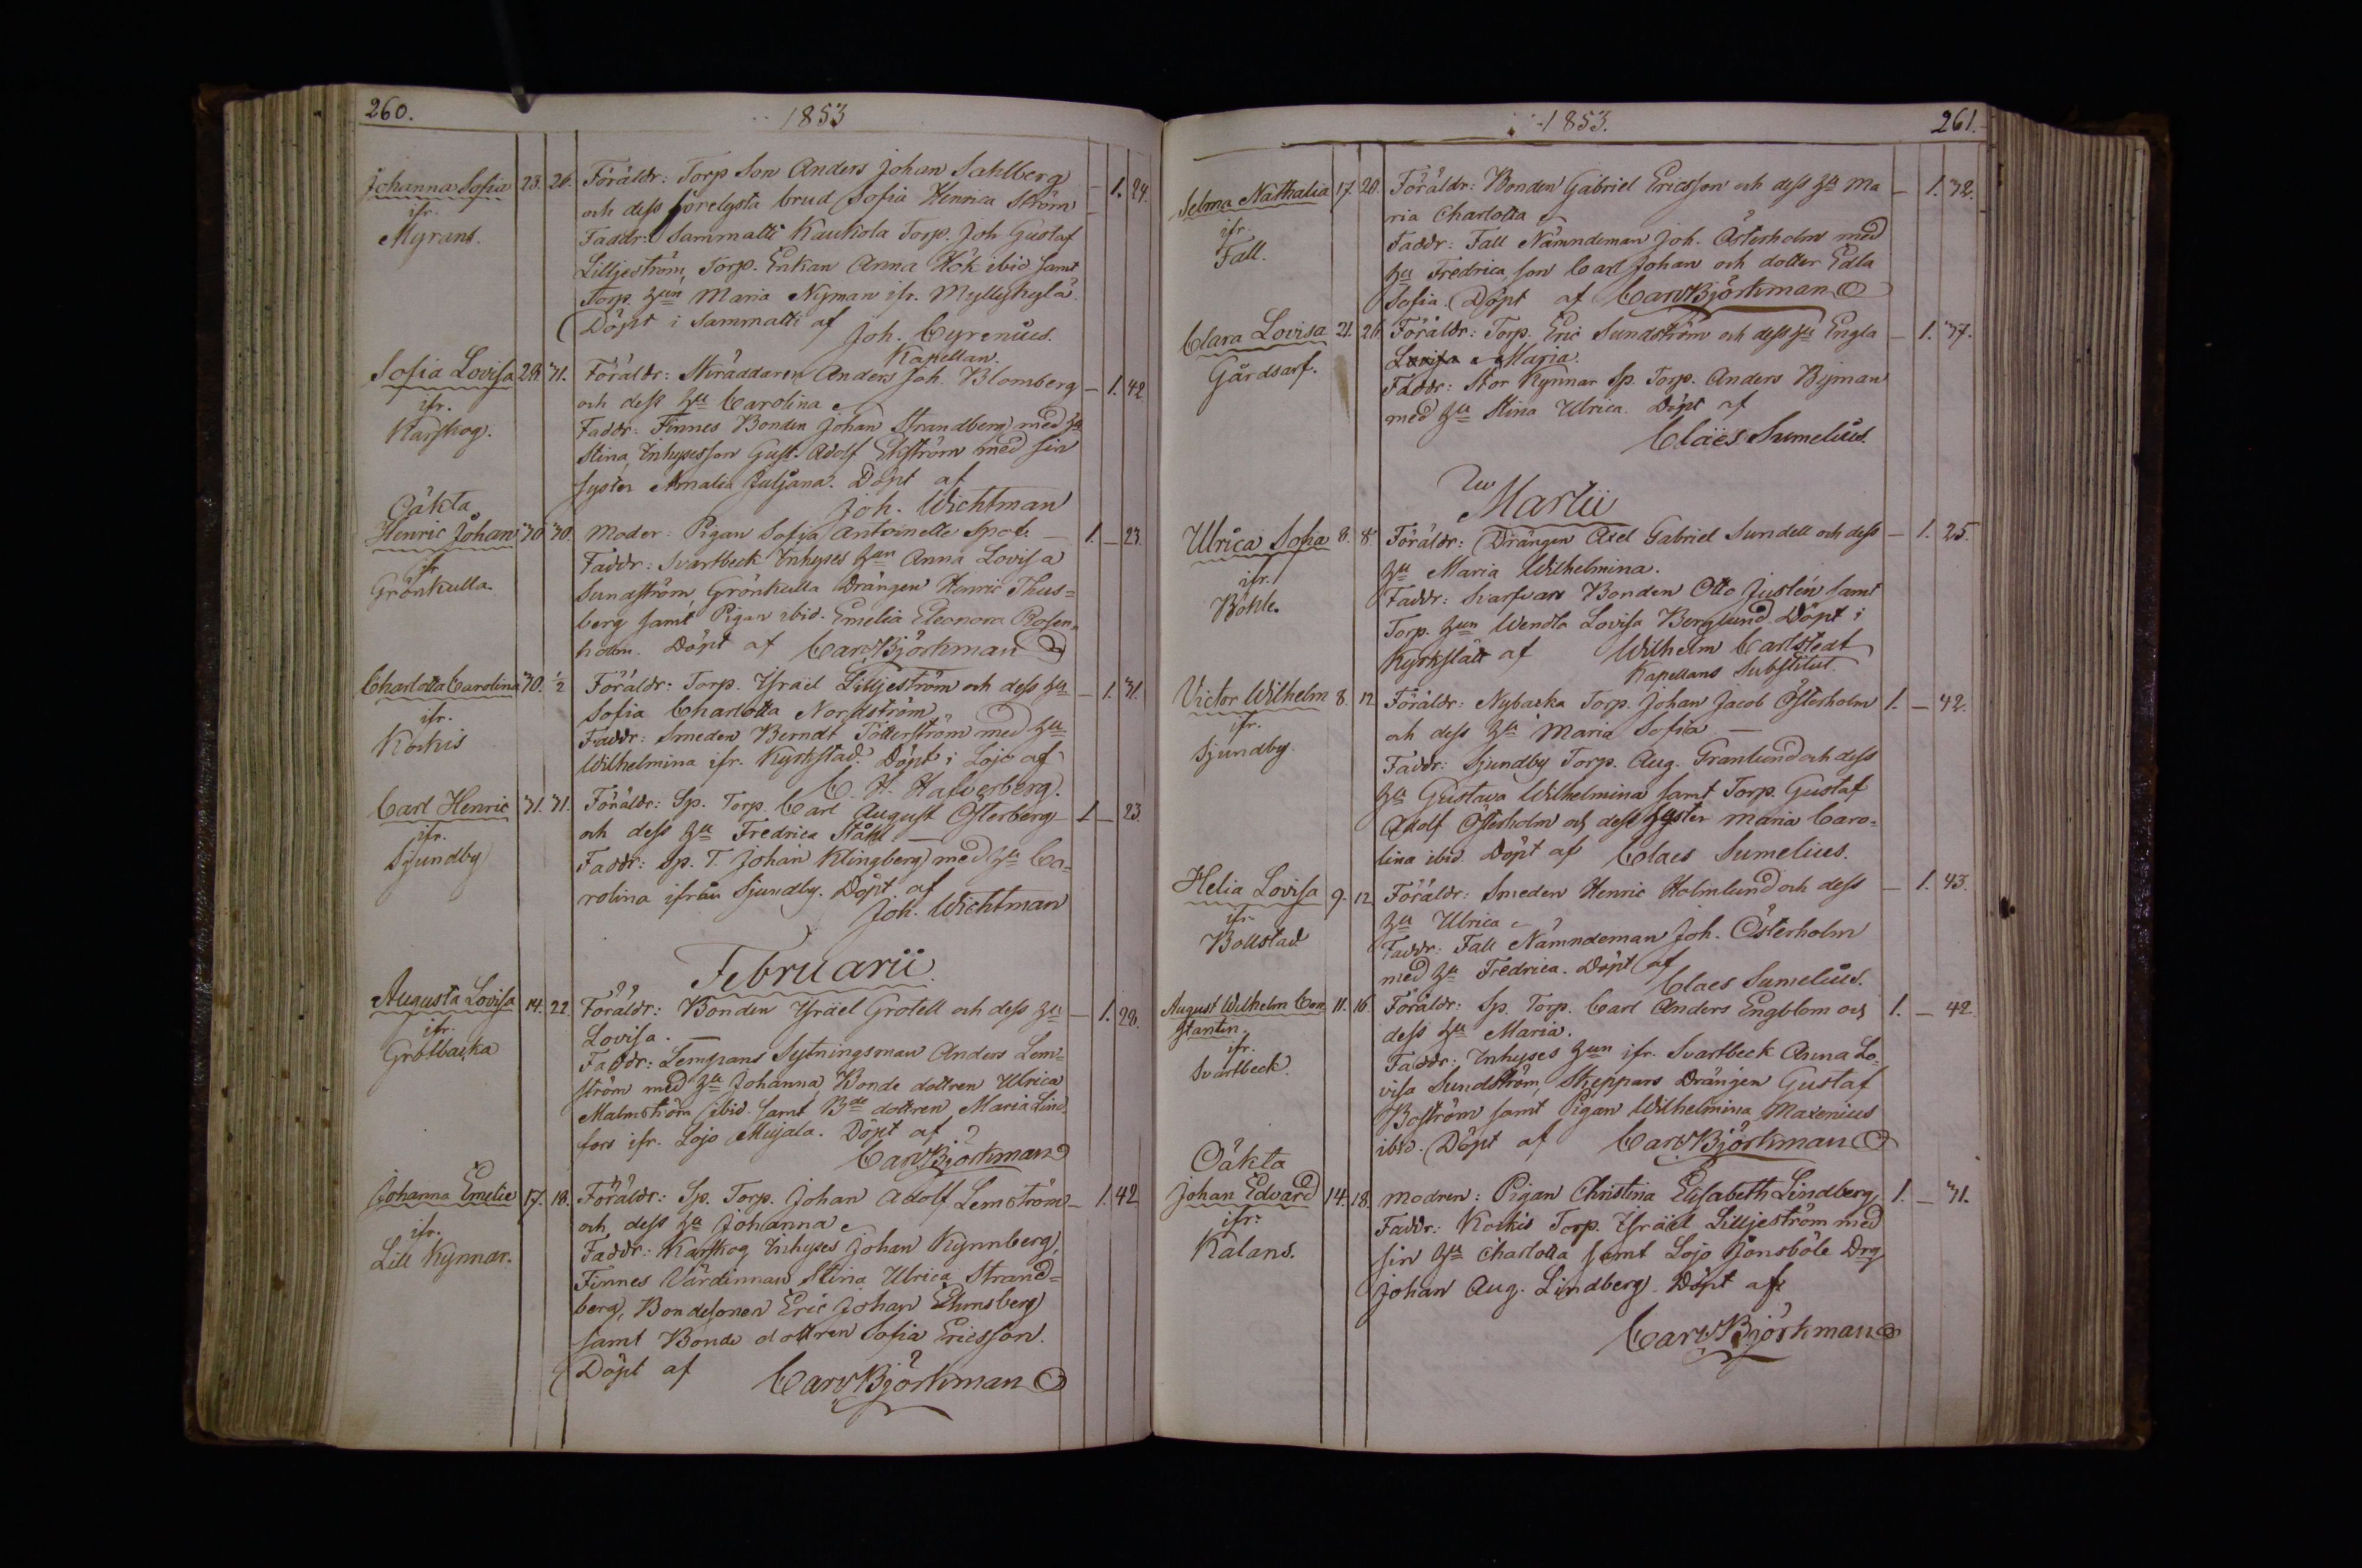 260.
1853
Johanna Sofia 23. 26. Föräldr: Torp Son Anders Johan Sahlberg — 1. 24.
ifr. och dess förelysta brud Sofia Henrica Ström
Myrans. Faddr: Sammatti Kaukola Torp. Joh Gustaf
Lilljeström, Torp. Enkan Anna Hök ibid samt
Torp. hun Maria Nyman ifr. Myllykylä.
Döpt i Sammatti af Joh. Cyrenius.
Kapellan.
Sofia Lovisa 28. 31. Föräldr: Skräddaren Anders Joh. Blomberg — 1. 42
ifr. och dess hu Carolina
Karskog. Faddr: Finnes Bonden Johan Strandberg med hu
Stina, Inhysesson Gust. Adolf Ekström med sin
syster Amalia Juljana. Döpt af
Joh. Wichtman
Oäkta
Henric Johan 30 30. Moder: Pigan Sofia Antoinette Spof. — 1. — 23.
ifr Faddr: Svartbeck Inhyses hun Anna Lovisa
Grönkulla. Sundström, Grönkulla Drängen Henric Thus=
berg samt Pigan ibid. Emelia Eleonora Rosen=
holm. Döpt af Carl Björkman
Charlotta Carolina 30. ½ Föräldr: Torp. Israel Lilljeström och dess hu — 1. 31.
ifr. Sofia Charlotta Nordström
Kockis Faddr: Smeden Berndt Tötterström med hu
Wilhelmina ifr. Kyrkstad. Döpt i Lojo af
C. H. Hafverberg.
Carl Henric 31. 31. Föräldr: Sp. Torp. Carl August Österberg 1 — 23.
ifr. och dess hu Fredrica Ståhl. —
Sjundby Faddr: Sp. T. Johan Klingberg med hu Ca=
rolina ifrån Sjundby. Döpt af
Joh. Wichtman
Februarii.
Augusta Lovisa 14. 22. Föräldr: Bonden Israel Grotell och dess hu — 1. 28.
ifr. Lovisa. —
Grotbacka Faddr: Lempans Sytningsman Anders Lem=
ström med hu Johanna, Bonde dottren Ulrica
Malmström ibid. samt Bde dottren Maria Lind=
fors ifr. Lojo Muijala. Döpt af
Carl Björkman
Johanna Emelie 17. 18. Föräldr: Sp. Torp. Johan Adolf Lemström — 1. 42
ifr. och dess hu Johanna
Lill Kynnar. Faddr: Karskog Inhyses Johan Kynnberg,
Finnes Värdinnan Stina Ulrica Strand=
berg, Bondesonen Eric Johan Ehrnsberg
samt Bonde dottren Sofia Ericsson.
Döpt af Carl Björkman
1853.
261.
Selma Nathalia 17. 20. Föräldr: Bonden Gabriel Ericsson och dess hu Ma — 1. 32.
ifr. ria Charlotta
Fall. Faddr: Fall Nämndeman Joh. Österholm med
hu Fredrica, son Carl Johan och dotter Edla
Sofia. Döpt af Carl Björkman
Clara Lovisa 21. 26. Föräldr: Torp. Eric Sundström och dess hu Engla — 1. 37.
Lovisa Maria.
Gårdsarf. Faddr: Stor Kynnar Sp. Torp. Anders Byman
med hu Stina Ulrica. Döpt af
Claës Sumelius.
Martii
Ulrica Sofia 8. 8. Föräldr: Drängen Axel Gabriel Sundell och dess — 1. 25.
ifr. hu Maria Wilhelmina.
Böhle. Faddr: Svarfvars Bonden Otto Juslén samt
Torp. hun Wendla Lovisa Berglund. Döpt i
Kyrkslätt af Wilhelm Carlstedt
Kapellans Substitut.
Victor Wilhelm 8. 12 Föräldr: Nybacka Torp. Johan Jacob Österholm 1. — 42.
ifr. och dess hu Maria Sofia —
Sjundby. Faddr: Sjundby Torp. Aug. Granlund och dess
hu Gustava Wilhelmina samt Torp. Gustaf
Adolf Österholm och dess syster Maria Caro=
lina ibid. Döpt af Claes Sumelius.
Helia Lovisa 9. 12 Föräldr: Smeden Henric Holmlund och dess — 1. 43.
ifr. hu Ulrica
Bollstad Faddr: Fall Nämndeman Joh. Österholm
med hu Fredrica. Döpt af
Claes Sumelius.
August Wilhelm Con 11. 16. Föräldr: Sp. Torp. Carl Anders Engblom och 1. — 42
stantin. dess hu Maria.
ifr. Faddr: Inhyses hun ifr. Svartbeck Anna Lo=
Svartbeck. visa Sundström, Skeppars Drängen Gustaf
Boström samt Pigan Wilhelmina Maxenius
ibid. Döpt af Carl Björkman
Oäkta
Johan Edvard 14. 18. Modren: Pigan Christina Elisabeth Lindberg, 1. — 31.
ifr: Faddr: Kockis Torp. Israël Lilljeström med
Kalans. sin hu Charlotta samt Lojo Jönsböle Drg
Johan Aug. Lindberg. Döpt af:
Carl Björkman